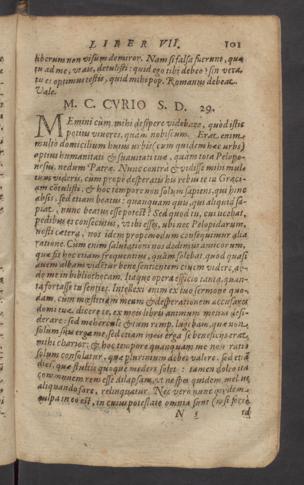 LIBER VII. 101
liberum non visum demiror. Nam si falsa fuerunt, quæ
tu ad me, vt ais, detulisti: quid ego tibi debeo? sin vera,
tu es optimus testis, quid mihi pop. Romanus debeat.
Vale.
M. C. CVRIO S. D. 29.
MEmini cum mihi desipere videbare, quòd istic
potius viueres, quàm nobiscum. Erat enim
multo domicilium huius vrbis (cum quidem hæc vrbs)
optius humanitati & suauitati tuæ, quàm tota Pelopon-
nesus, nedum Patræ. Nunc contrà & vidisse mihi mul-
tum videris, cum prope desperatis his rebus te in Græci-
am cõtulisti, & hoc tempore non solum sapiens, qui hinc
absis: sed etiam beatus: quanquam quis, qui aliquid sa-
piat, nunc beatus esse potest? Sed quod tu, cui licebat,
pedibus es consecutus, vt ibi esses, vbi nec Pelopidarum,
nosti cetera, nos idem propemodum consequimur alia
ratione. Cùm enim salutationi nos dedimus amicorum,
quæ fit hoc etiam frequentius, quàm solebat, quòd quasi
auem albam videntur bene sentientem ciuem videre, ab-
do me in bibliothecam. Itaque opera efficio tanta, quan-
ta fortasse tu senties. Intellexi enim ex tuo sermone quo-
dam, cùm mœstitiam meam & desperationem accusares
domi tuæ, dicere te, ex meis libris animum meum desi-
derare: sed mehercule & tum remp. lugebam, quæ non
solum suis erga me, sed etiam meis erga se beneficiis erat
mihi charior: & hoc tempore quanquam me non ratio
solum consolatur, quæ plurimum debet valere, sed etiã
dies, quæ stultis quoque mederi solet: tamen doleo ita
communem rem esse dilapsam, vt ne spes quidem, melius
aliquando fore, relinquatur. Nec vero nunc quidem
culpa in eo est, in cuius potestate omnia sunt (nisi fortè
N 5 id